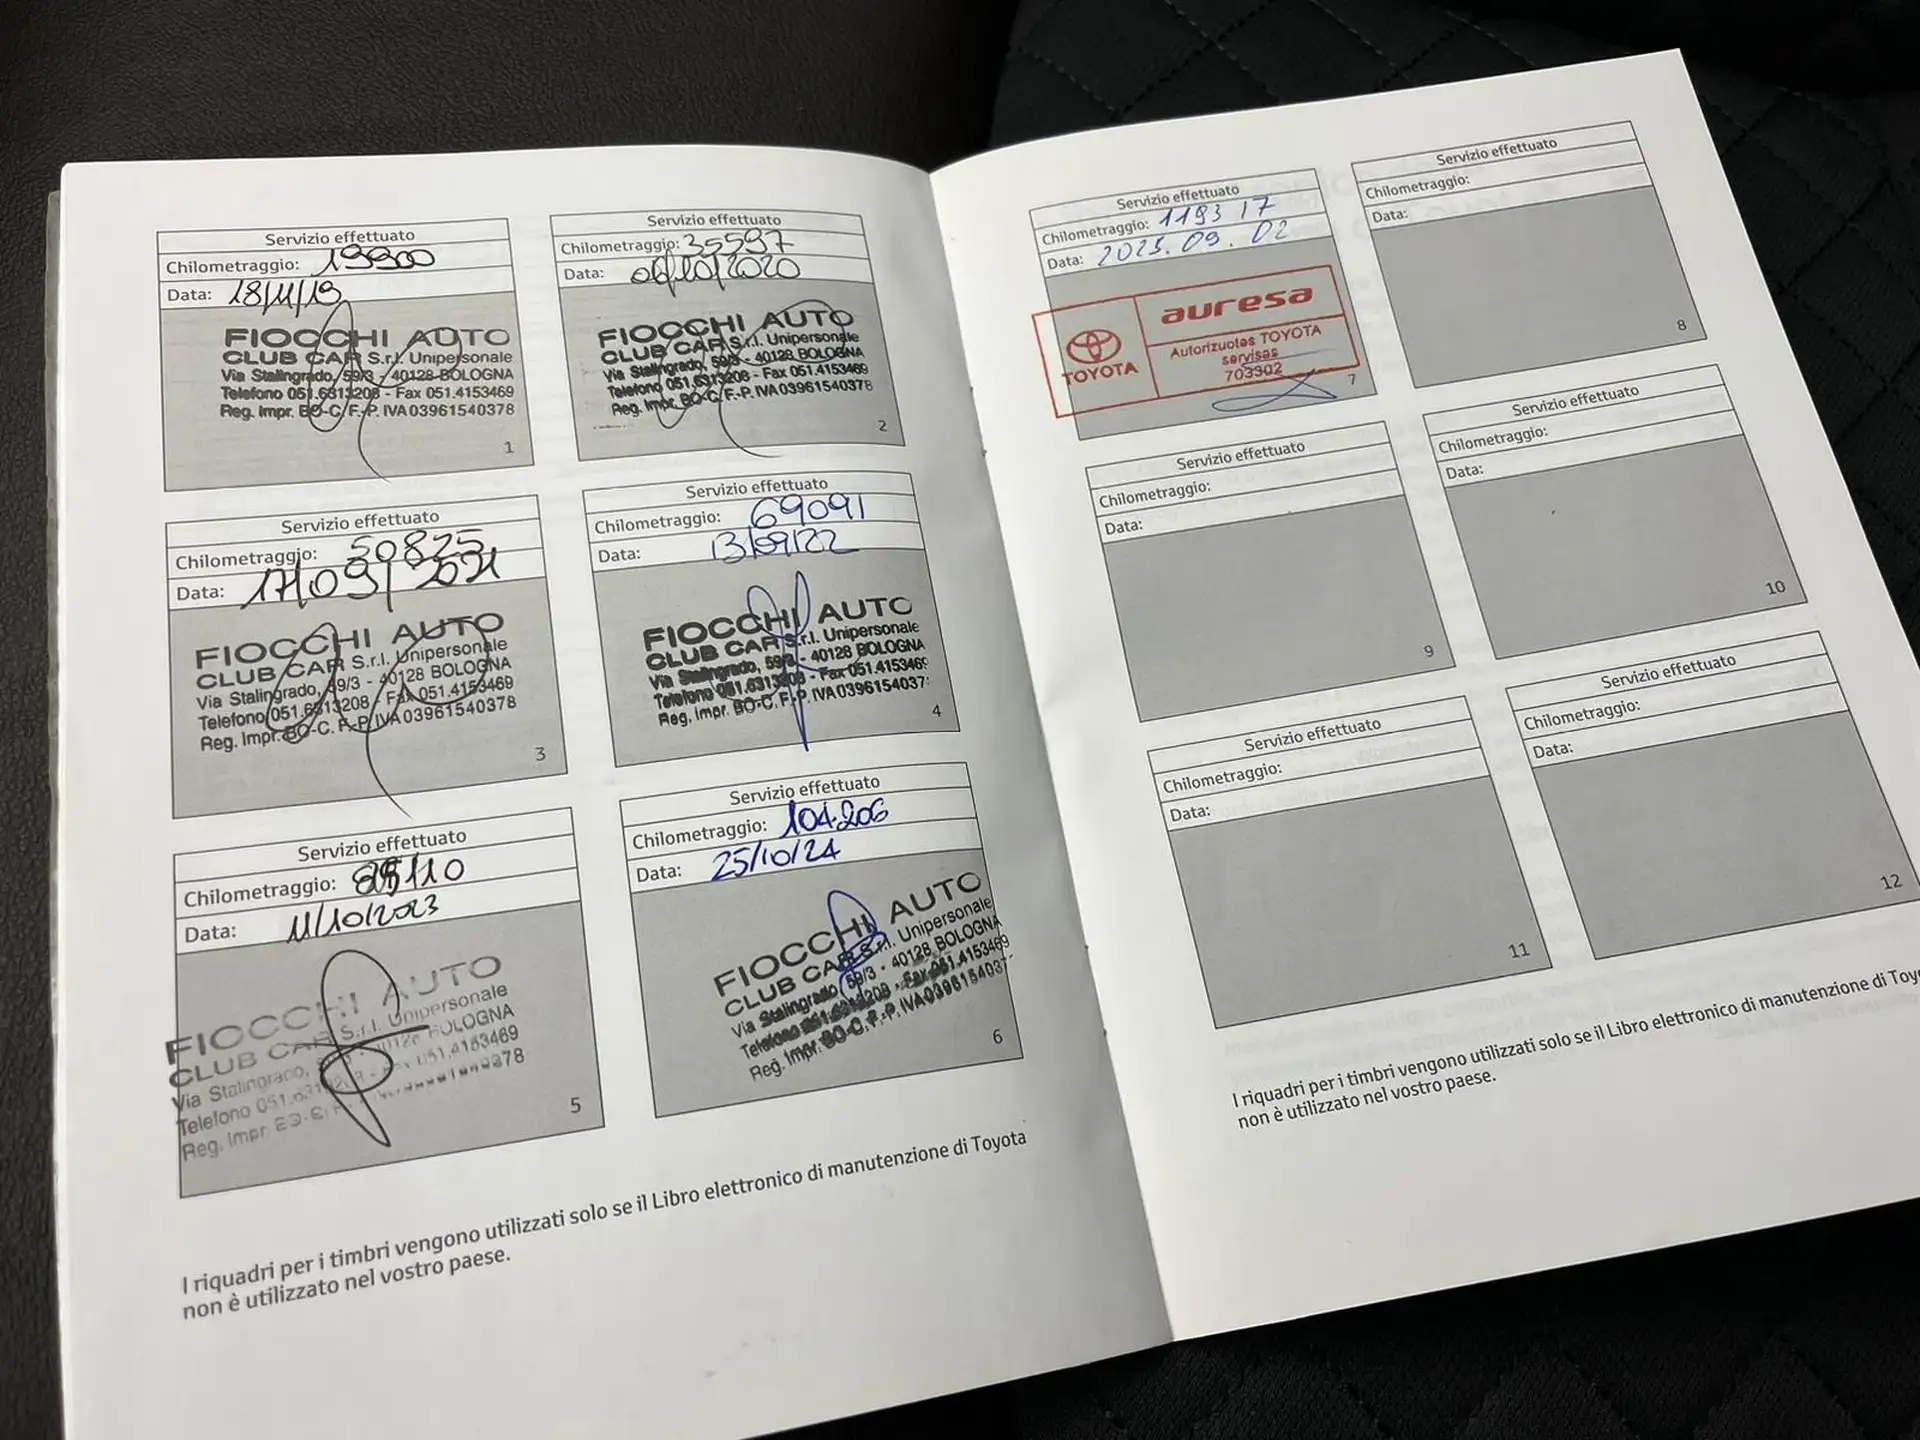 Servizio effettuato
Chilometraggio: 19900
Data: 18/11/19
FIOCCHI AUTO
CLUB CAR S.r.l. Unipersonale
Via Stalingrado, 59/3 - 40128 BOLOGNA
Telefono 051.6313208 - Fax 051.4153469
Reg. Impr. BO-C.F.-P.IVA03961540378
1
Servizio effettuato
Chilometraggio: 35597
Data: 06/10/2020
FIOCCHI AUTO
CLUB CAR S.r.l. Unipersonale
Via Stalingrado, 59/3 - 40128 BOLOGNA
Telefono 051.6313208 - Fax 051.4153469
Reg. Impr. BO-C.F.-P.IVA03961540378
2
Servizio effettuato
Chilometraggio: 50825
Data: 17/09/2021
FIOCCHI AUTO
CLUB CAR S.r.l. Unipersonale
Via Stalingrado, 59/3 - 40128 BOLOGNA
Telefono 051.6313208 - Fax 051.4153469
Reg. Impr. BO-C.F.-P.IVA03961540378
3
Servizio effettuato
Chilometraggio: 69091
Data: 13/09/22
FIOCCHI AUTO
CLUB CAR S.r.l. Unipersonale
Via Stalingrado, 59/3 - 40128 BOLOGNA
Telefono 051.6313208 - Fax 051.415346
Reg. Impr. BO-C.F.-P.IVA0396154037
4
Servizio effettuato
Chilometraggio:
Data: 11/10/2023
FIOCCHI AUTO
CLUB CAR S.r.l. Unipersonale
Via Stalingrado, BOLOGNA
Telefono 051.4153469
Reg. Impr.
5
Servizio effettuato
Chilometraggio: 104.206
Data: 25/10/24
FIOCCHI AUTO
CLUB CAR S.r.l. Unipersonale
Via Stalingrado, 59/3 - 40128 BOLOGNA
Telefono 051.6313208 - Fax 051.4153469
Reg. Impr. BO-C.F.-P.IVA0396154037
6
I riquadri per i timbri vengono utilizzati solo se il Libro elettronico di manutenzione di Toyota
non è utilizzato nel vostro paese.
Servizio effettuato
Chilometraggio: 119317
Data: 2025.09.02
TOYOTA
auresa
Autorizuotas TOYOTA
servisas
703302
7
Servizio effettuato
Chilometraggio:
Data:
8
Servizio effettuato
Chilometraggio:
Data:
9
Servizio effettuato
Chilometraggio:
Data:
10
Servizio effettuato
Chilometraggio:
Data:
11
Servizio effettuato
Chilometraggio:
Data:
12
I riquadri per i timbri vengono utilizzati solo se il Libro elettronico di manutenzione di Toy
non è utilizzato nel vostro paese.